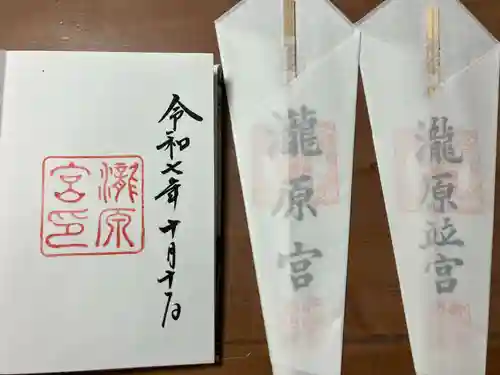 令和七年十月十一日
瀧原
宮印
瀧原宮
瀧原竝宮